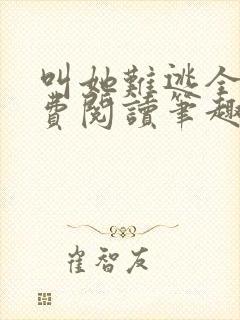 叫她難逃全
費閱讀筆趣
崔智友